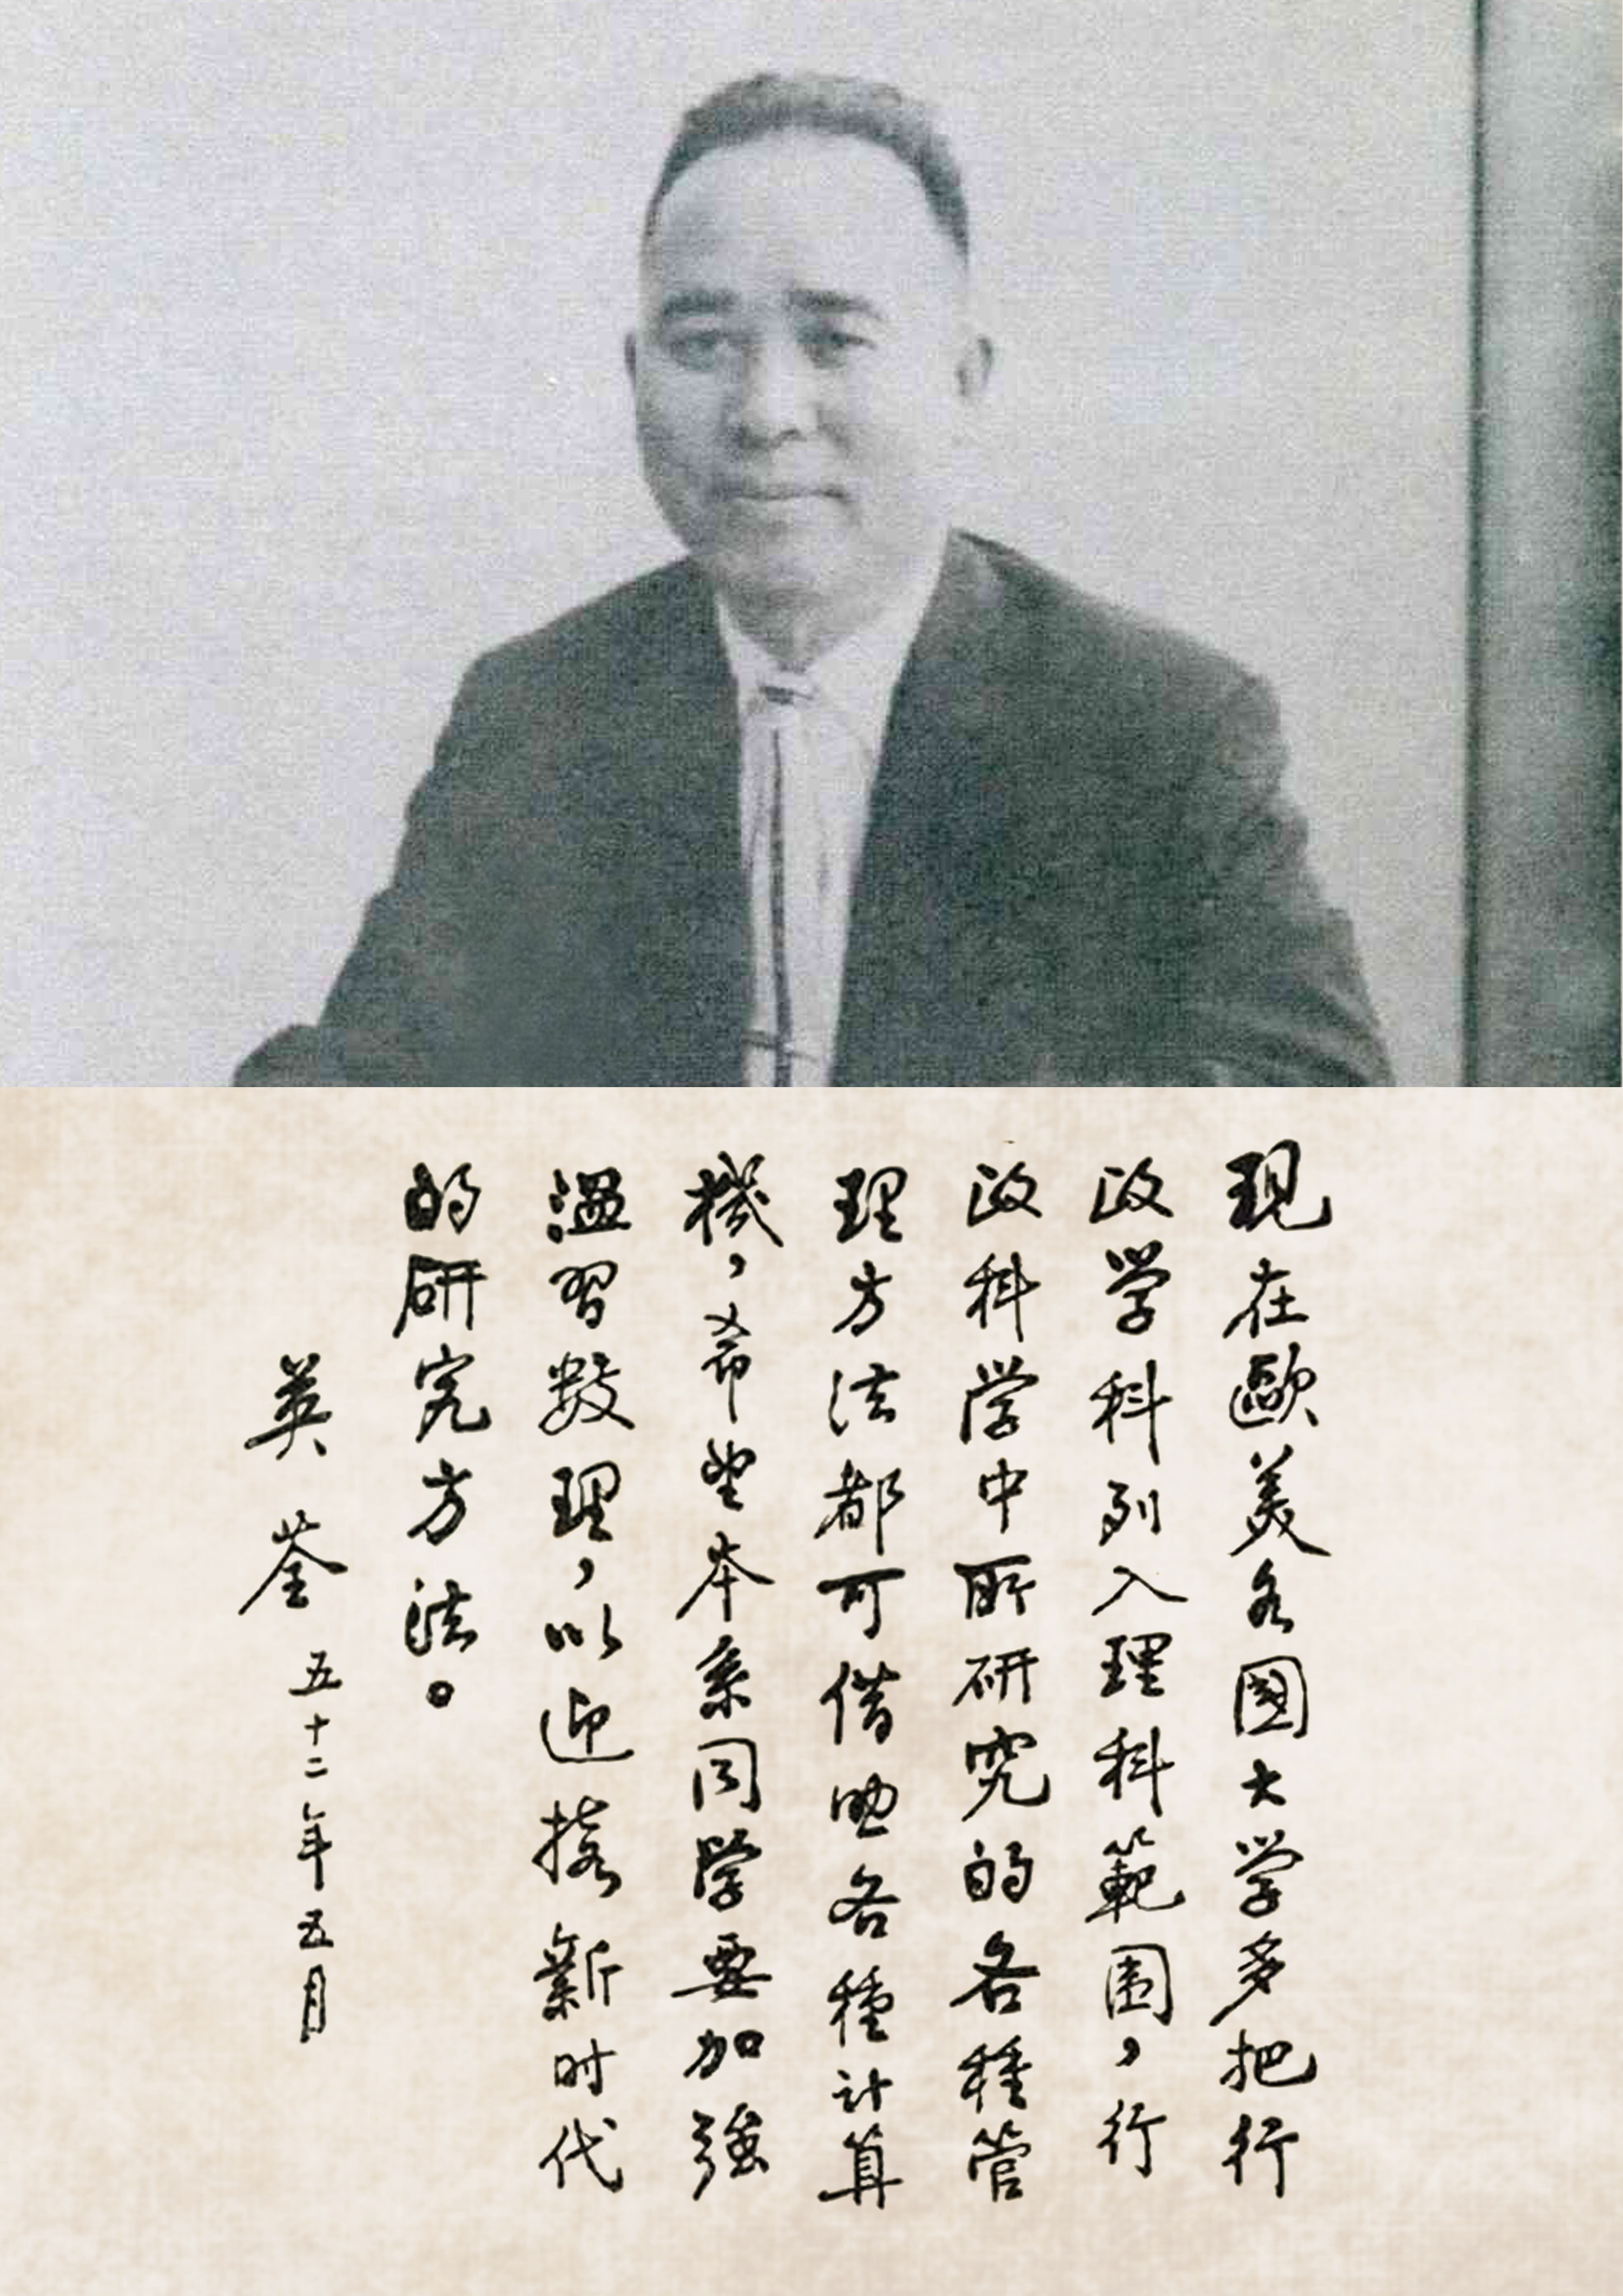 现在歐美各國大学多把行
政学科列入理科範围，行
政科学中所研究的各種管
理方法都可借助各種计算
機，希望本系同學要加強
溫習数理，以迎接新时代
的研究方法。
英荃 五十二年五月